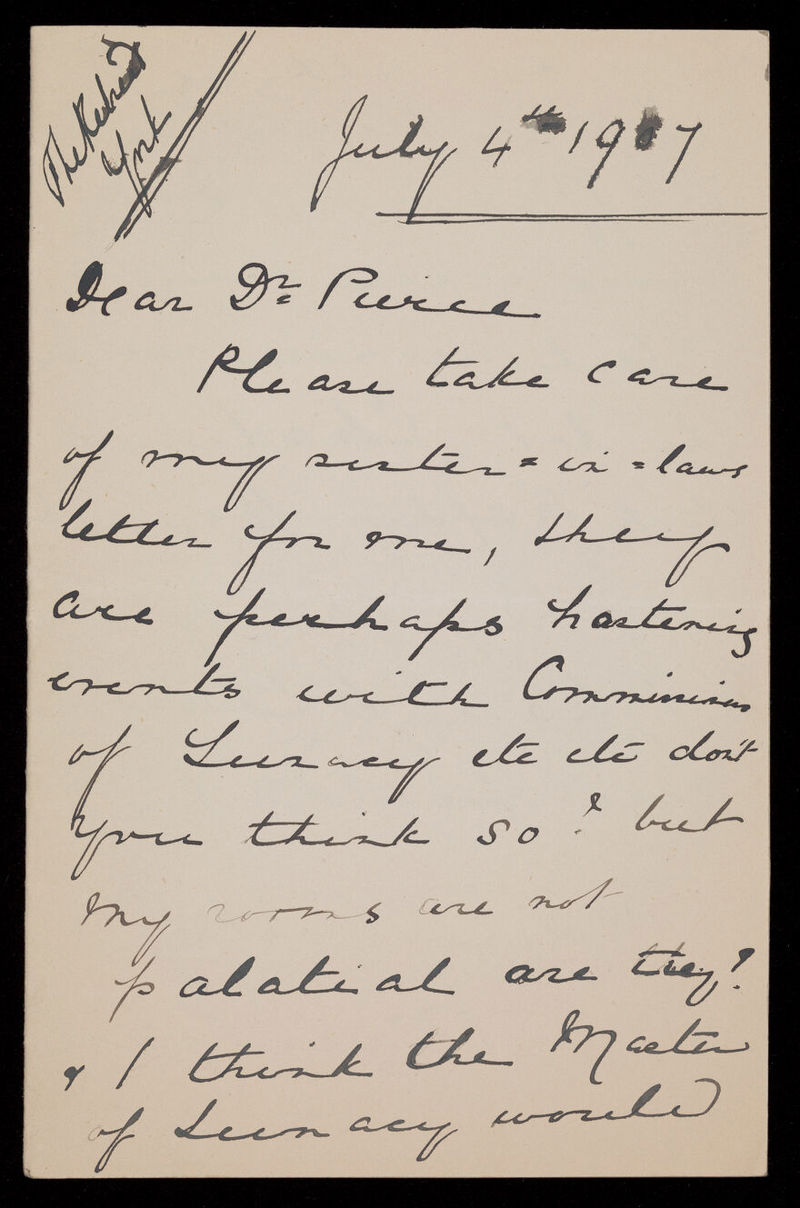 The Retreat
York
July 4th 1907
Dear Dr Pierce
Please take care
of my sister=in=laws
letter for me, they
are perhaps hastening
events with Commissions
of Lunacy etc etc don't
you think so? but
my rooms are not
palatial are they?
& I think the Master
of Lunacy would